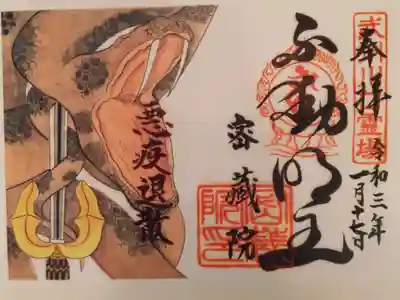 奉拝
令和三年
一月十七日
不動明王
密藏院
悪疫退散